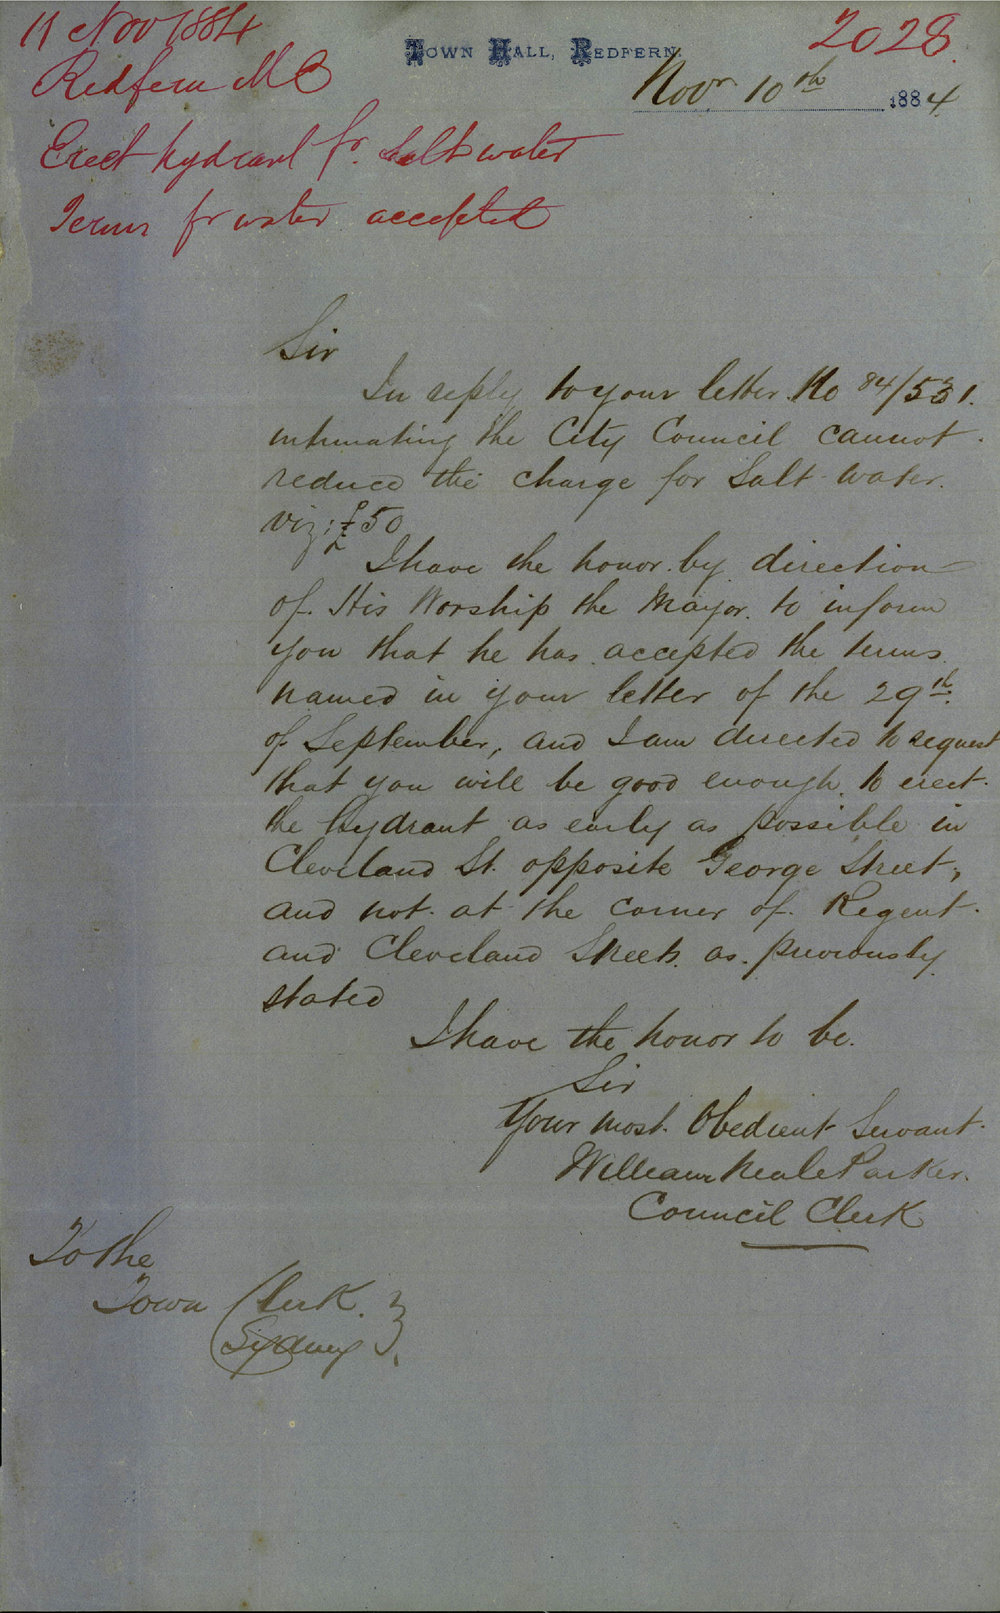 11 Nov 1884
2028
Redfern M C
TOWN HALL, REDFERN.
Novr 10th 1884.
Erect hydrant fr. Salt water
Terms fr water accepted
Sir
In reply to your letter No 84/531.
intimating the City Council cannot
reduce the charge for Salt water.
viz; £50
I have the honor by direction
of His Worship the Mayor to inform
you that he has accepted the terms
named in your letter of the 29th.
of September, and I am directed to request
that you will be good enough to erect
the hydrant as early as possible in
Cleveland St. opposite George Street,
and not at the corner of Regent
and Cleveland Streets as previously
stated
I have the honor to be.
Sir
Your most Obedient Servant
William Neale Parker.
Council Clerk
To the
Town Clerk.
Sydney